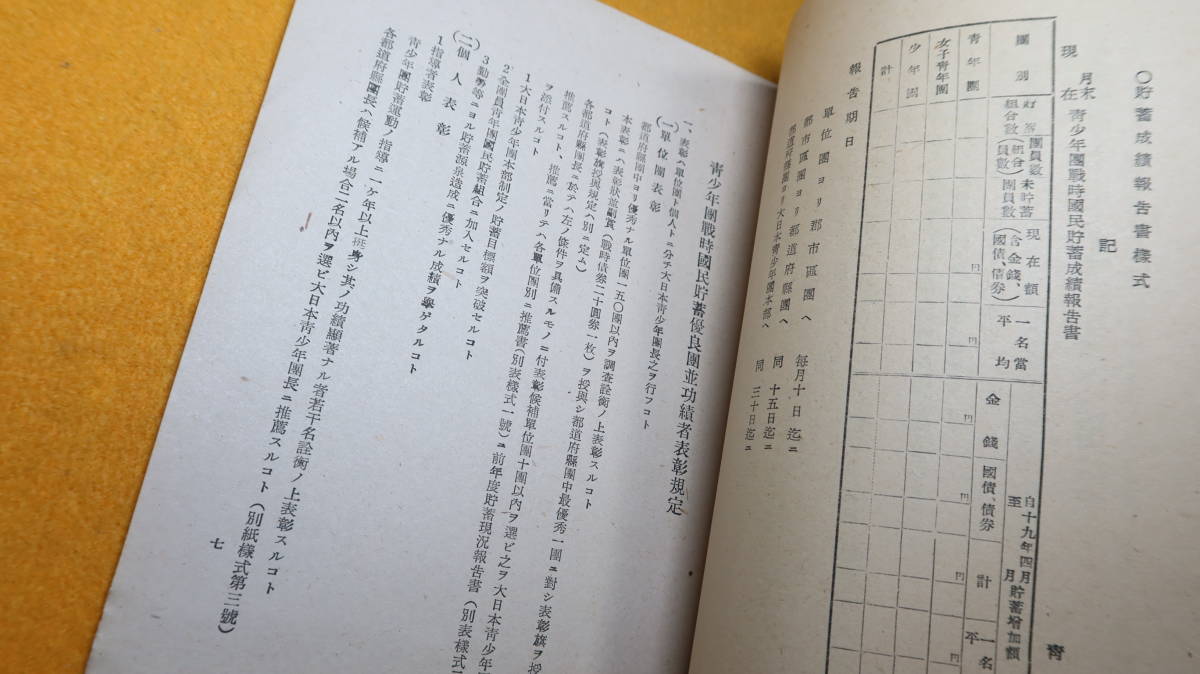 〇貯蓄成績報告書樣式
月末
現在 靑少年團戰時國民貯蓄成績報告書
記
團別
貯蓄組合數
團員數(組合員數)
未貯蓄團員數
現在額(含金錢、國債、債券)
一名當平均
自十九年四月
至 月 貯蓄增加額
金錢
國債、債券
計
一名
平
靑年團
女子靑年團
少年團
計
円
円
円
円
円
報告期日
單位團ヨリ郡市區團ヘ 每月十日迄ニ
郡市區團ヨリ都道府縣團ヘ 同 十五日迄ニ
都道府縣團ヨリ大日本靑少年團本部ヘ 同 三十日迄ニ
靑
靑少年團戰時國民貯蓄優良團並功績者表彰規定
一、表彰ハ單位團ト個人トニ分チ大日本靑少年團長之ヲ行フコト
(一)單位團表彰
都道府縣團中ヨリ優秀ナル單位團一五〇團以內ヲ調査詮衡ノ上表彰スルコト
本表彰ニハ表彰狀並副賞(戰時債券二十圓券一枚)ヲ授與シ都道府縣團中最優秀一團ニ對シ表彰旗ヲ授
コト(表彰旗授與規定ハ別ニ定ム)
各都道府縣團長ニ於テハ左ノ條件ヲ具備スルモノニ付表彰候補單位團十團以內ヲ選ビ之ヲ大日本靑少年
推薦スルコト、推薦ニ當リテハ各單位團別ニ推薦書(別表樣式一號)ニ前年度貯蓄現況報告書(別表樣式
ヲ添付スルコト
1 大日本靑少年團本部制定ノ貯蓄目標額ヲ突破セルコト
2 全團員靑年團國民貯蓄組合ニ加入セルコト
3 勤勞等ニヨル貯蓄源泉造成ニ優秀ナル成績ヲ擧ゲタルコト
(二)個人表彰
1 指導者表彰
靑少年團貯蓄運動ノ指導ニ一ケ年以上挺身シ其ノ功績顯著ナル者若干名詮衡ノ上表彰スルコト
各都道府縣團長ハ候補アル場合二名以內ヲ選ビ大日本靑少年團長ニ推薦スルコト(別紙樣式第三號)
七